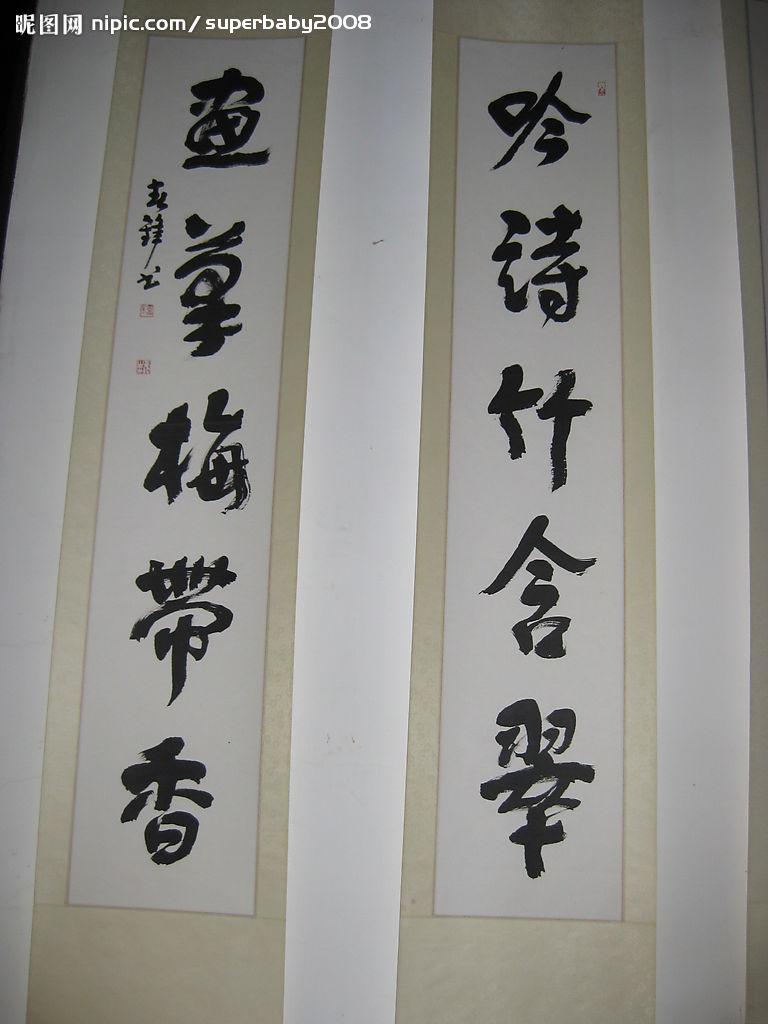 昵图网 nipic.com/superbaby2008
吟詩竹含翠
畫草梅帶香